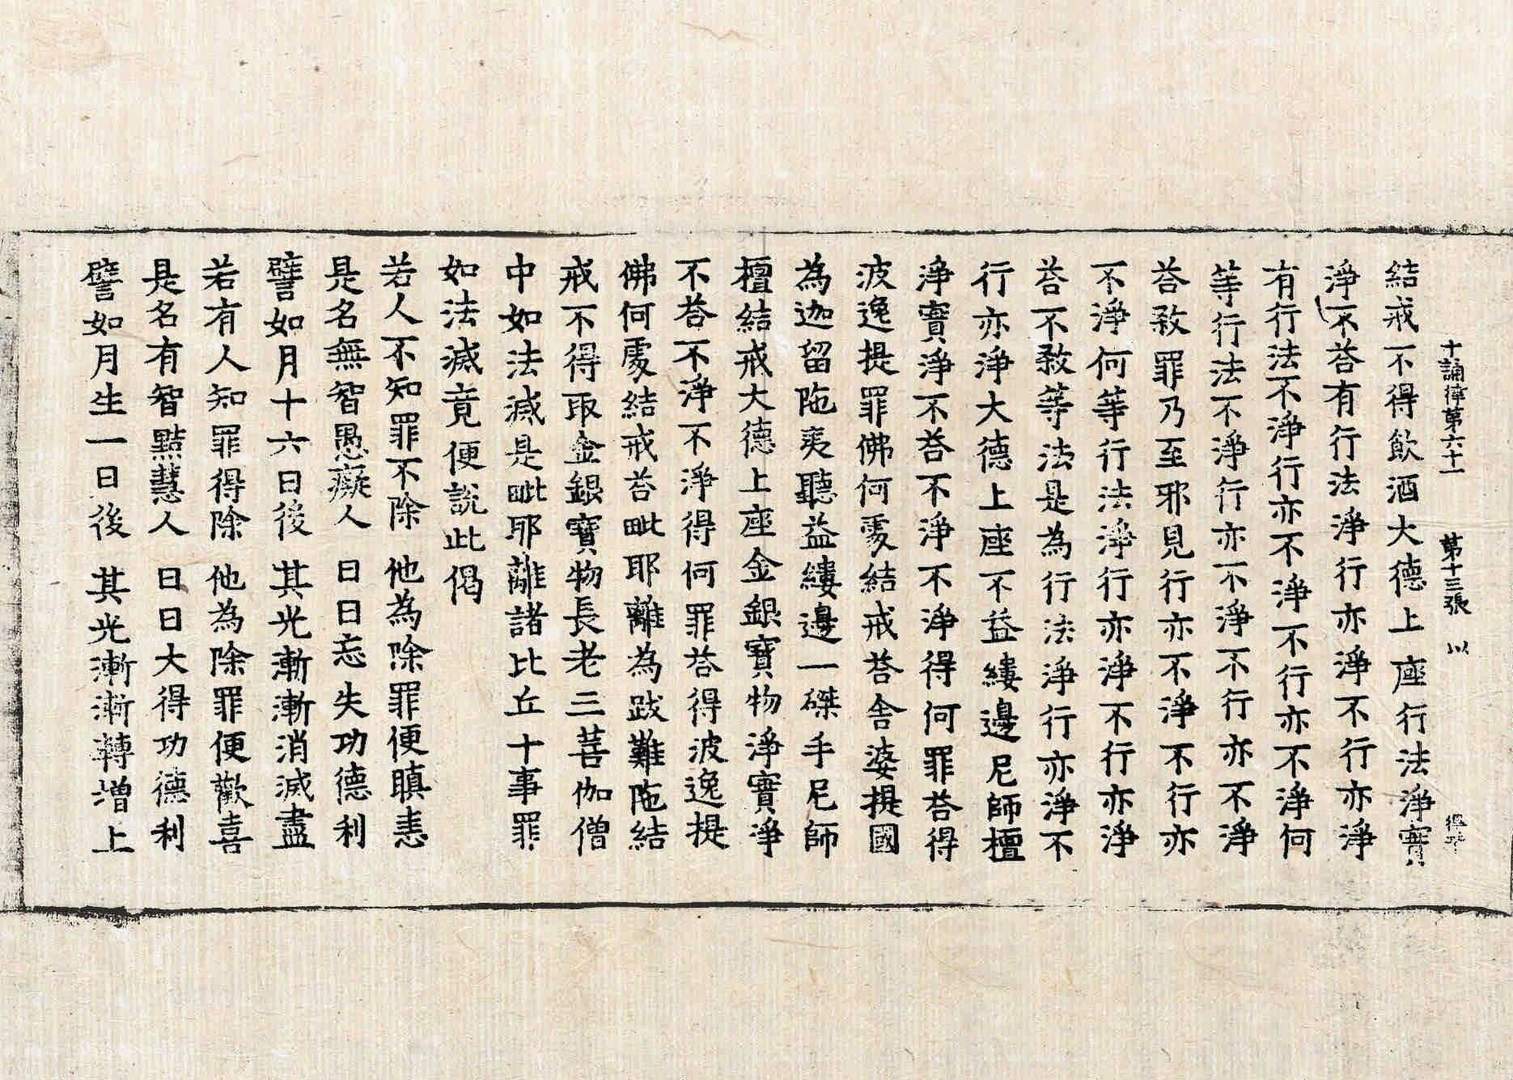 十誦律第六十一　第十三張　以
結戒不得飲酒大德上座行法淨實
淨不荅有行法淨行亦淨不行亦淨
有行法不淨行亦不淨不行亦不淨何
等行法不淨行亦不淨不行亦不淨
荅殺罪乃至邪見行亦不淨不行亦
不淨何等行法淨行亦淨不行亦淨
荅不殺等法是為行法淨行亦淨不
行亦淨大德上座不益縷邊尼師檀
淨實淨不荅不淨不淨得何罪荅得
波逸提罪佛何處結戒荅舍婆提國
為迦留陁夷聽益縷邊一磔手尼師
檀結戒大德上座金銀寶物淨實淨
不荅不淨不淨得何罪荅得波逸提
佛何處結戒荅毗耶離為跋難陁結
戒不得取金銀寶物長老三菩伽僧
中如法滅是毗耶離諸比丘十事罪
如法滅竟便說此偈
若人不知罪不除　他為除罪便瞋恚
是名無智愚癡人　日日忘失功德利
譬如月十六日後　其光漸漸消滅盡
若有人知罪得除　他為除罪便歡喜
是名有智黠慧人　日日大得功德利
譬如月生一日後　其光漸漸轉增上